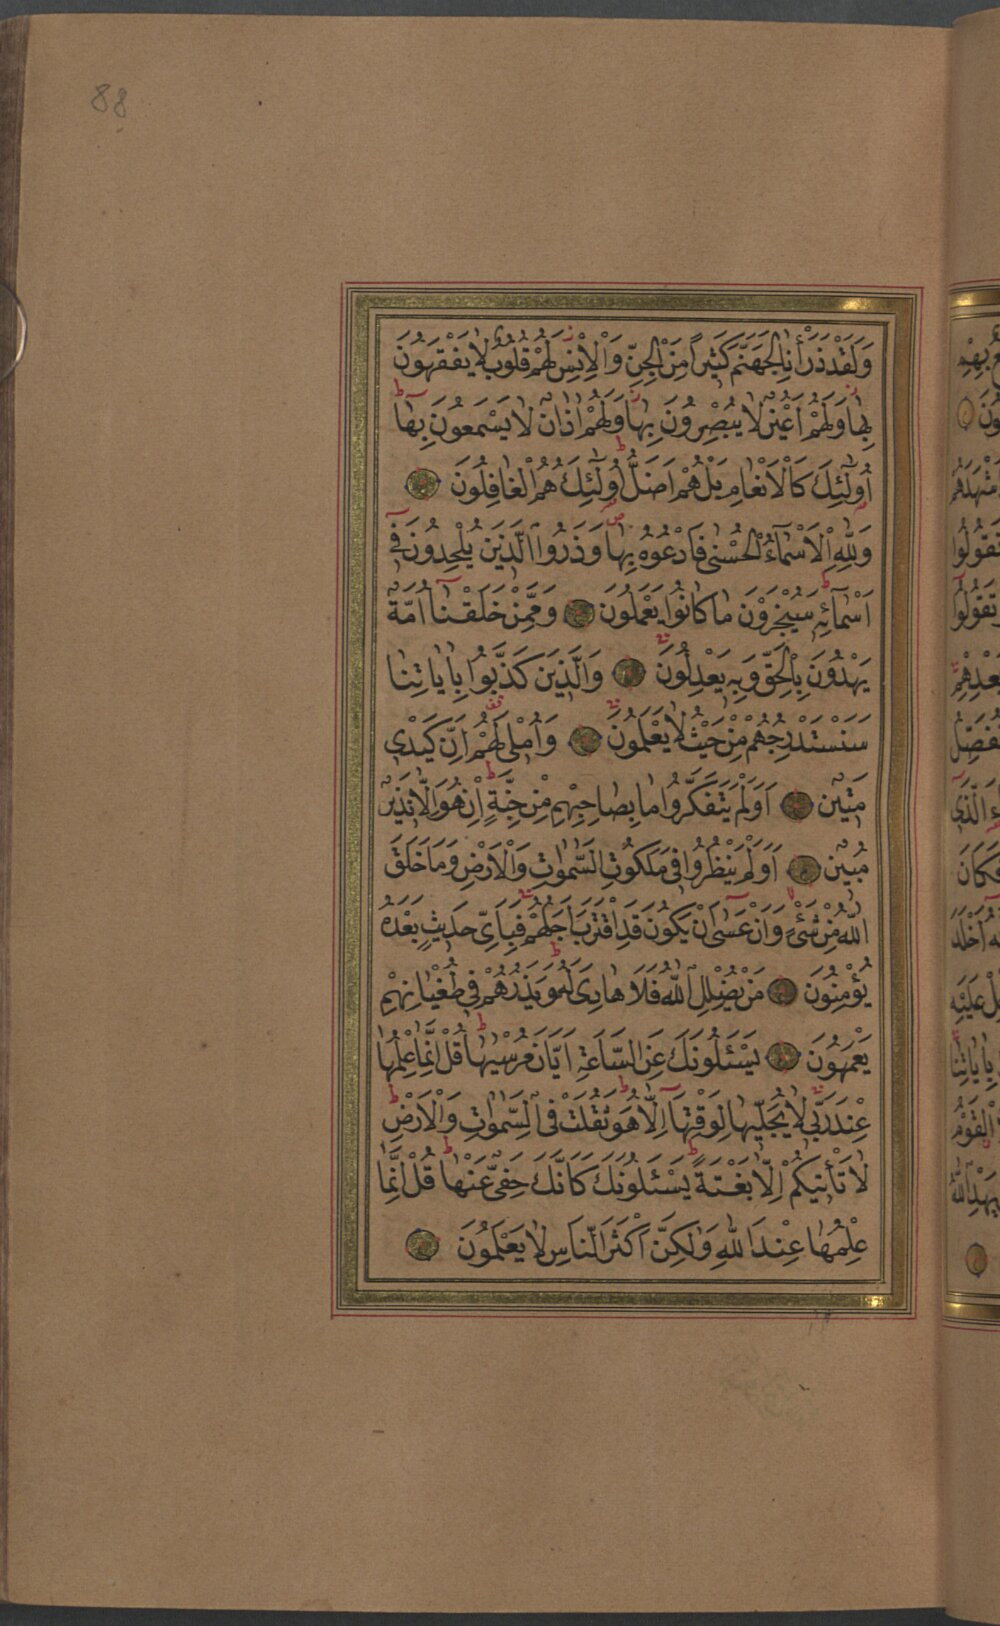 88
وَلَقَدْ ذَرَأْنَا لِجَهَنَّمَ كَثِيرًا مِنَ الْجِنِّ وَالْاِنْسِ لَهُمْ قُلُوبٌ لَا يَفْقَهُونَ
بِهَا وَلَهُمْ اَعْيُنٌ لَا يُبْصِرُونَ بِهَا وَلَهُمْ اٰذَانٌ لَا يَسْمَعُونَ بِهَا
اُولٰٓئِكَ كَالْاَنْعَامِ بَلْ هُمْ اَضَلُّ اُولٰٓئِكَ هُمُ الْغَافِلُونَ
وَلِلّٰهِ الْاَسْمَآءُ الْحُسْنٰى فَادْعُوهُ بِهَا وَذَرُوا الَّذِينَ يُلْحِدُونَ فِٓى
اَسْمَآئِهِ سَيُجْزَوْنَ مَا كَانُوا يَعْمَلُونَ وَمِمَّنْ خَلَقْنَٓا اُمَّةٌ
يَهْدُونَ بِالْحَقِّ وَبِهِ يَعْدِلُونَ وَالَّذِينَ كَذَّبُوا بِاٰيَاتِنَا
سَنَسْتَدْرِجُهُمْ مِنْ حَيْثُ لَا يَعْلَمُونَ وَاُمْلِى لَهُمْ اِنَّ كَيْدِى
مَتِينٌ اَوَلَمْ يَتَفَكَّرُوا مَا بِصَاحِبِهِمْ مِنْ جِنَّةٍ اِنْ هُوَ اِلَّا نَذِيرٌ
مُبِينٌ اَوَلَمْ يَنْظُرُوا فِى مَلَكُوتِ السَّمٰوَاتِ وَالْاَرْضِ وَمَا خَلَقَ
اللّٰهُ مِنْ شَىْءٍ وَاَنْ عَسٰٓى اَنْ يَكُونَ قَدِ اقْتَرَبَ اَجَلُهُمْ فَبِاَىِّ حَدِيثٍ بَعْدَهُ
يُؤْمِنُونَ مَنْ يُضْلِلِ اللّٰهُ فَلَا هَادِىَ لَهُ وَيَذَرُهُمْ فِى طُغْيَانِهِمْ
يَعْمَهُونَ يَسْئَلُونَكَ عَنِ السَّاعَةِ اَيَّانَ مُرْسٰيهَا قُلْ اِنَّمَا عِلْمُهَا
عِنْدَ رَبِّى لَا يُجَلِّيهَا لِوَقْتِهَٓا اِلَّا هُوَ ثَقُلَتْ فِى السَّمٰوَاتِ وَالْاَرْضِ
لَا تَأْتِيكُمْ اِلَّا بَغْتَةً يَسْئَلُونَكَ كَاَنَّكَ حَفِىٌّ عَنْهَا قُلْ اِنَّمَا
عِلْمُهَا عِنْدَ اللّٰهِ وَلٰكِنَّ اَكْثَرَ النَّاسِ لَا يَعْلَمُونَ